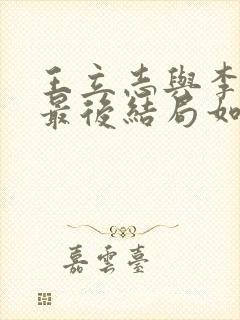 王立志與李
最後結局如
嘉雲臺